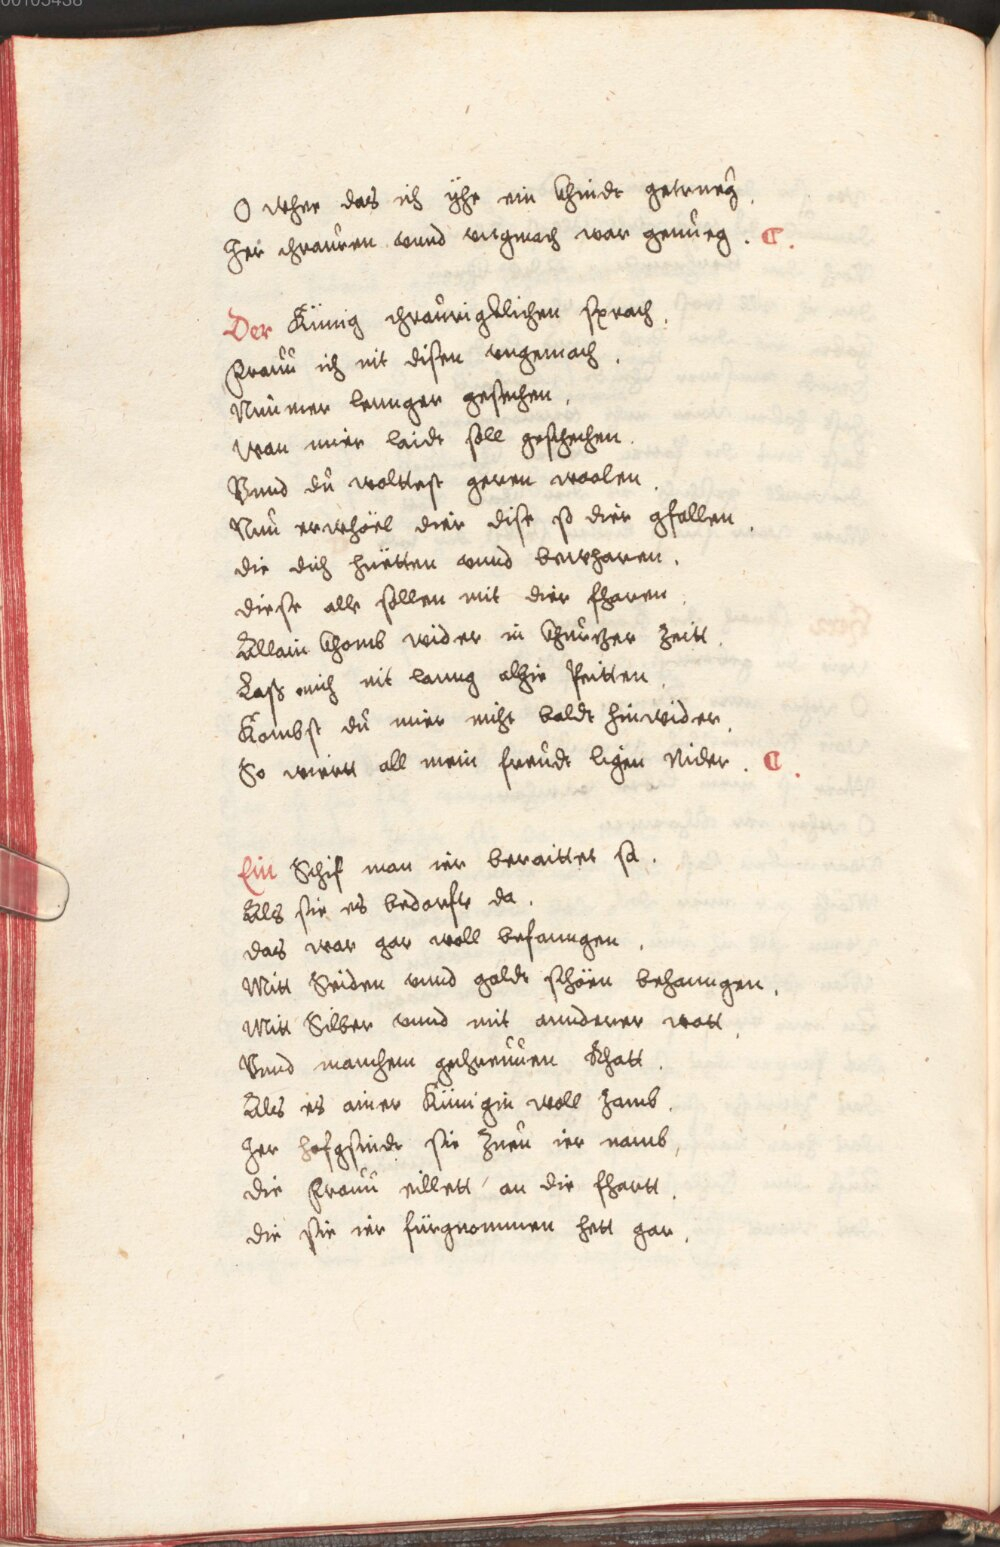 00105438
O wher das ich yhe ein Khindt getrueg.
Her thrauren vnnd vngmach war genueg. ¶.
Der Künnig thraurigklichen sprach.
Frauu ich nit disen vngemach.
Nimmer lennger gesechen.
Wan mier laidt soll geschechen.
Vnnd du wolttest geren woolen.
Nun erwhöel dier dise so dier gfallen.
die dich huëtten vnnd bewharen.
diese alle sollen mit dier fharen.
Allain Khomb wider in Khurtzer Zeitt.
Laß mich nit lanng alhie Peitten.
Kombst du mier nicht baldt hinwider.
So wiertt all mein freudt ligen Nider. ¶.
Ein Schif man ier beraittet so.
Als sie es bedorfte da.
das war gar woll befanngen.
Mitt Seiden vnnd goldt schöen behanngen.
Mitt Silber vnnd mit annderer watt.
Vnnd manchem gethreuuen Rhatt.
Als es ainer Künigin woll Zamb.
Her hofgsindt sie Zueu ier namb,
die Frauu eillett an die fhartt.
die sie ier fürgnommen hett gar.